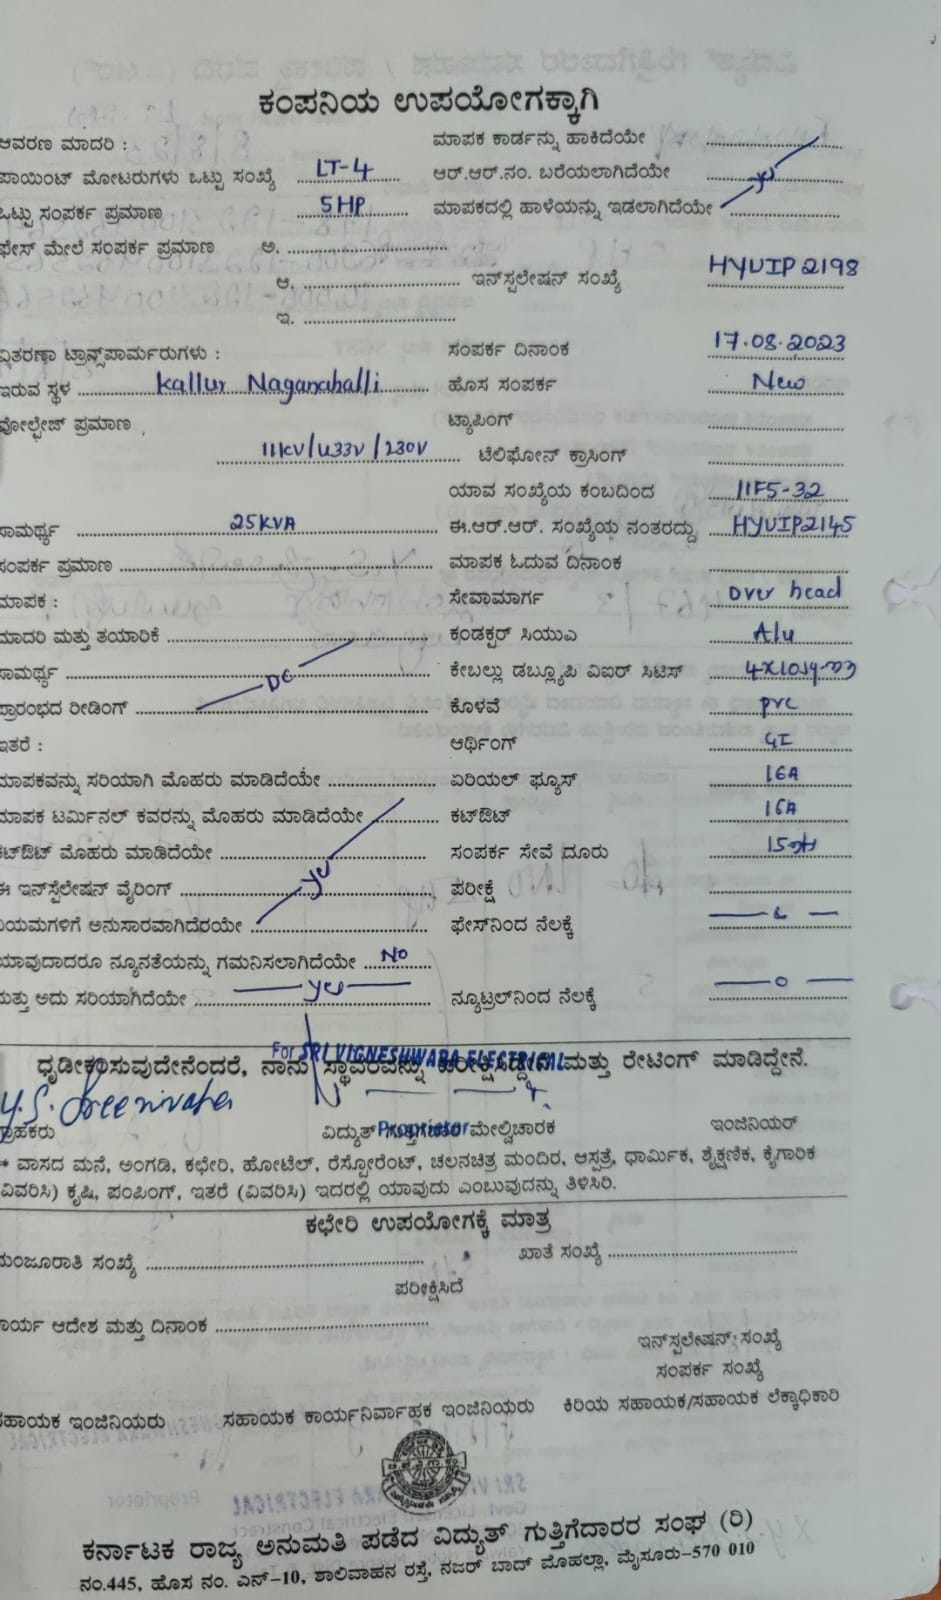 ಕಂಪನಿಯ ಉಪಯೋಗಕ್ಕಾಗಿ
ಆವರಣ ಮಾದರಿ : ಮಾಪಕ ಕಾರ್ಡನ್ನು ಹಾಕಿದೆಯೇ
ಪಾಯಿಂಟ್ ಮೋಟರುಗಳು ಒಟ್ಟು ಸಂಖ್ಯೆ LT-4 ಆರ್.ಆರ್.ನಂ. ಬರೆಯಲಾಗಿದೆಯೇ yes
ಒಟ್ಟು ಸಂಪರ್ಕ ಪ್ರಮಾಣ 5HP ಮಾಪಕದಲ್ಲಿ ಹಾಳೆಯನ್ನು ಇಡಲಾಗಿದೆಯೇ
ಫೇಸ್ ಮೇಲೆ ಸಂಪರ್ಕ ಪ್ರಮಾಣ ಅ.
ಆ. ಇನ್‌ಸ್ಟಲೇಷನ್ ಸಂಖ್ಯೆ HYUIP2198
ಇ.
ವಿತರಣಾ ಟ್ರಾನ್ಸ್‌ಪಾರ್ಮರುಗಳು : ಸಂಪರ್ಕ ದಿನಾಂಕ 17.08.2023
ಇರುವ ಸ್ಥಳ Kallur Naganahalli ಹೊಸ ಸಂಪರ್ಕ New
ವೋಲ್ಟೇಜ್ ಪ್ರಮಾಣ ಟ್ಯಾಪಿಂಗ್
11KV/433V/230V ಟೆಲಿಫೋನ್ ಕ್ರಾಸಿಂಗ್
ಯಾವ ಸಂಖ್ಯೆಯ ಕಂಬದಿಂದ 11F5-32
ಸಾಮರ್ಥ್ಯ 25KVA ಈ.ಆರ್.ಆರ್. ಸಂಖ್ಯೆಯ ನಂತರದ್ದು HYUIP2145
ಸಂಪರ್ಕ ಪ್ರಮಾಣ ಮಾಪಕ ಓದುವ ದಿನಾಂಕ
ಮಾಪಕ : ಸೇವಾಮಾರ್ಗ Over head
ಮಾದರಿ ಮತ್ತು ತಯಾರಿಕೆ ಕಂಡಕ್ಟರ್ ಸಿಯುಎ Alu
ಸಾಮರ್ಥ್ಯ ಕೇಬಲ್ಲು ಡಬ್ಲ್ಯೂಪಿ ವಿಐಆರ್ ಸಿಟಿಸ್
ಪ್ರಾರಂಭದ ರೀಡಿಂಗ್ ಕೊಳವೆ pvc
ಇತರೆ : ಆರ್ಥಿಂಗ್ GI
ಮಾಪಕವನ್ನು ಸರಿಯಾಗಿ ಮೊಹರು ಮಾಡಿದೆಯೇ ಏರಿಯಲ್ ಫ್ಯೂಸ್ 16A
ಮಾಪಕ ಟರ್ಮಿನಲ್ ಕವರನ್ನು ಮೊಹರು ಮಾಡಿದೆಯೇ ಕಟ್‌ಔಟ್ 16A
ಕಟ್‌ಔಟ್ ಮೊಹರು ಮಾಡಿದೆಯೇ ಸಂಪರ್ಕ ಸೇವೆ ದೂರು
ಈ ಇನ್‌ಸ್ಟೆಲೇಷನ್ ವೈರಿಂಗ್ yes ಪರೀಕ್ಷೆ
ನಿಯಮಗಳಿಗೆ ಅನುಸಾರವಾಗಿದೆರಯೇ ಫೇಸ್‌ನಿಂದ ನೆಲಕ್ಕೆ
ಯಾವುದಾದರೂ ನ್ಯೂನತೆಯನ್ನು ಗಮನಿಸಲಾಗಿದೆಯೇ No
ಮತ್ತು ಅದು ಸರಿಯಾಗಿದೆಯೇ yes ನ್ಯೂಟ್ರಲ್‌ನಿಂದ ನೆಲಕ್ಕೆ — 0 —
For SRI VIGNESHWARA ELECTRICAL
ಧೃಡೀಕರಿಸುವುದೇನೆಂದರೆ, ನಾನು ಸ್ಥಾವರವನ್ನು ಪರೀಕ್ಷಿಸಿದ್ದೇನೆ ಮತ್ತು ರೇಟಿಂಗ್ ಮಾಡಿದ್ದೇನೆ.
Y.S. Sreenivasa
ಗ್ರಾಹಕರು ವಿದ್ಯುತ್ ಮೇಲ್ವಿಚಾರಕ ಇಂಜಿನಿಯರ್
Proprietor
* ವಾಸದ ಮನೆ, ಅಂಗಡಿ, ಕಛೇರಿ, ಹೋಟೆಲ್, ರೆಸ್ಟೋರೆಂಟ್, ಚಲನಚಿತ್ರ ಮಂದಿರ, ಆಸ್ಪತ್ರೆ, ಧಾರ್ಮಿಕ, ಶೈಕ್ಷಣಿಕ, ಕೈಗಾರಿಕ
(ವಿವರಿಸಿ) ಕೃಷಿ, ಪಂಪಿಂಗ್, ಇತರೆ (ವಿವರಿಸಿ) ಇದರಲ್ಲಿ ಯಾವುದು ಎಂಬುವುದನ್ನು ತಿಳಿಸಿರಿ.
ಕಛೇರಿ ಉಪಯೋಗಕ್ಕೆ ಮಾತ್ರ
ಮಂಜೂರಾತಿ ಸಂಖ್ಯೆ ಖಾತೆ ಸಂಖ್ಯೆ
ಪರೀಕ್ಷಿಸಿದೆ
ಕಾರ್ಯ ಆದೇಶ ಮತ್ತು ದಿನಾಂಕ
ಇನ್‌ಸ್ಟಲೇಷನ್ ಸಂಖ್ಯೆ
ಸಂಪರ್ಕ ಸಂಖ್ಯೆ
ಸಹಾಯಕ ಇಂಜಿನಿಯರು ಸಹಾಯಕ ಕಾರ್ಯನಿರ್ವಾಹಕ ಇಂಜಿನಿಯರು ಕಿರಿಯ ಸಹಾಯಕ/ಸಹಾಯಕ ಲೆಕ್ಕಾಧಿಕಾರಿ
ಕರ್ನಾಟಕ ರಾಜ್ಯ ಅನುಮತಿ ಪಡೆದ ವಿದ್ಯುತ್ ಗುತ್ತಿಗೆದಾರರ ಸಂಘ (ರಿ)
ನಂ.445, ಹೊಸ ನಂ. ಎನ್-10, ಶಾಲಿವಾಹನ ರಸ್ತೆ, ನಜರ್ ಬಾದ್ ಮೊಹಲ್ಲಾ, ಮೈಸೂರು-570 010